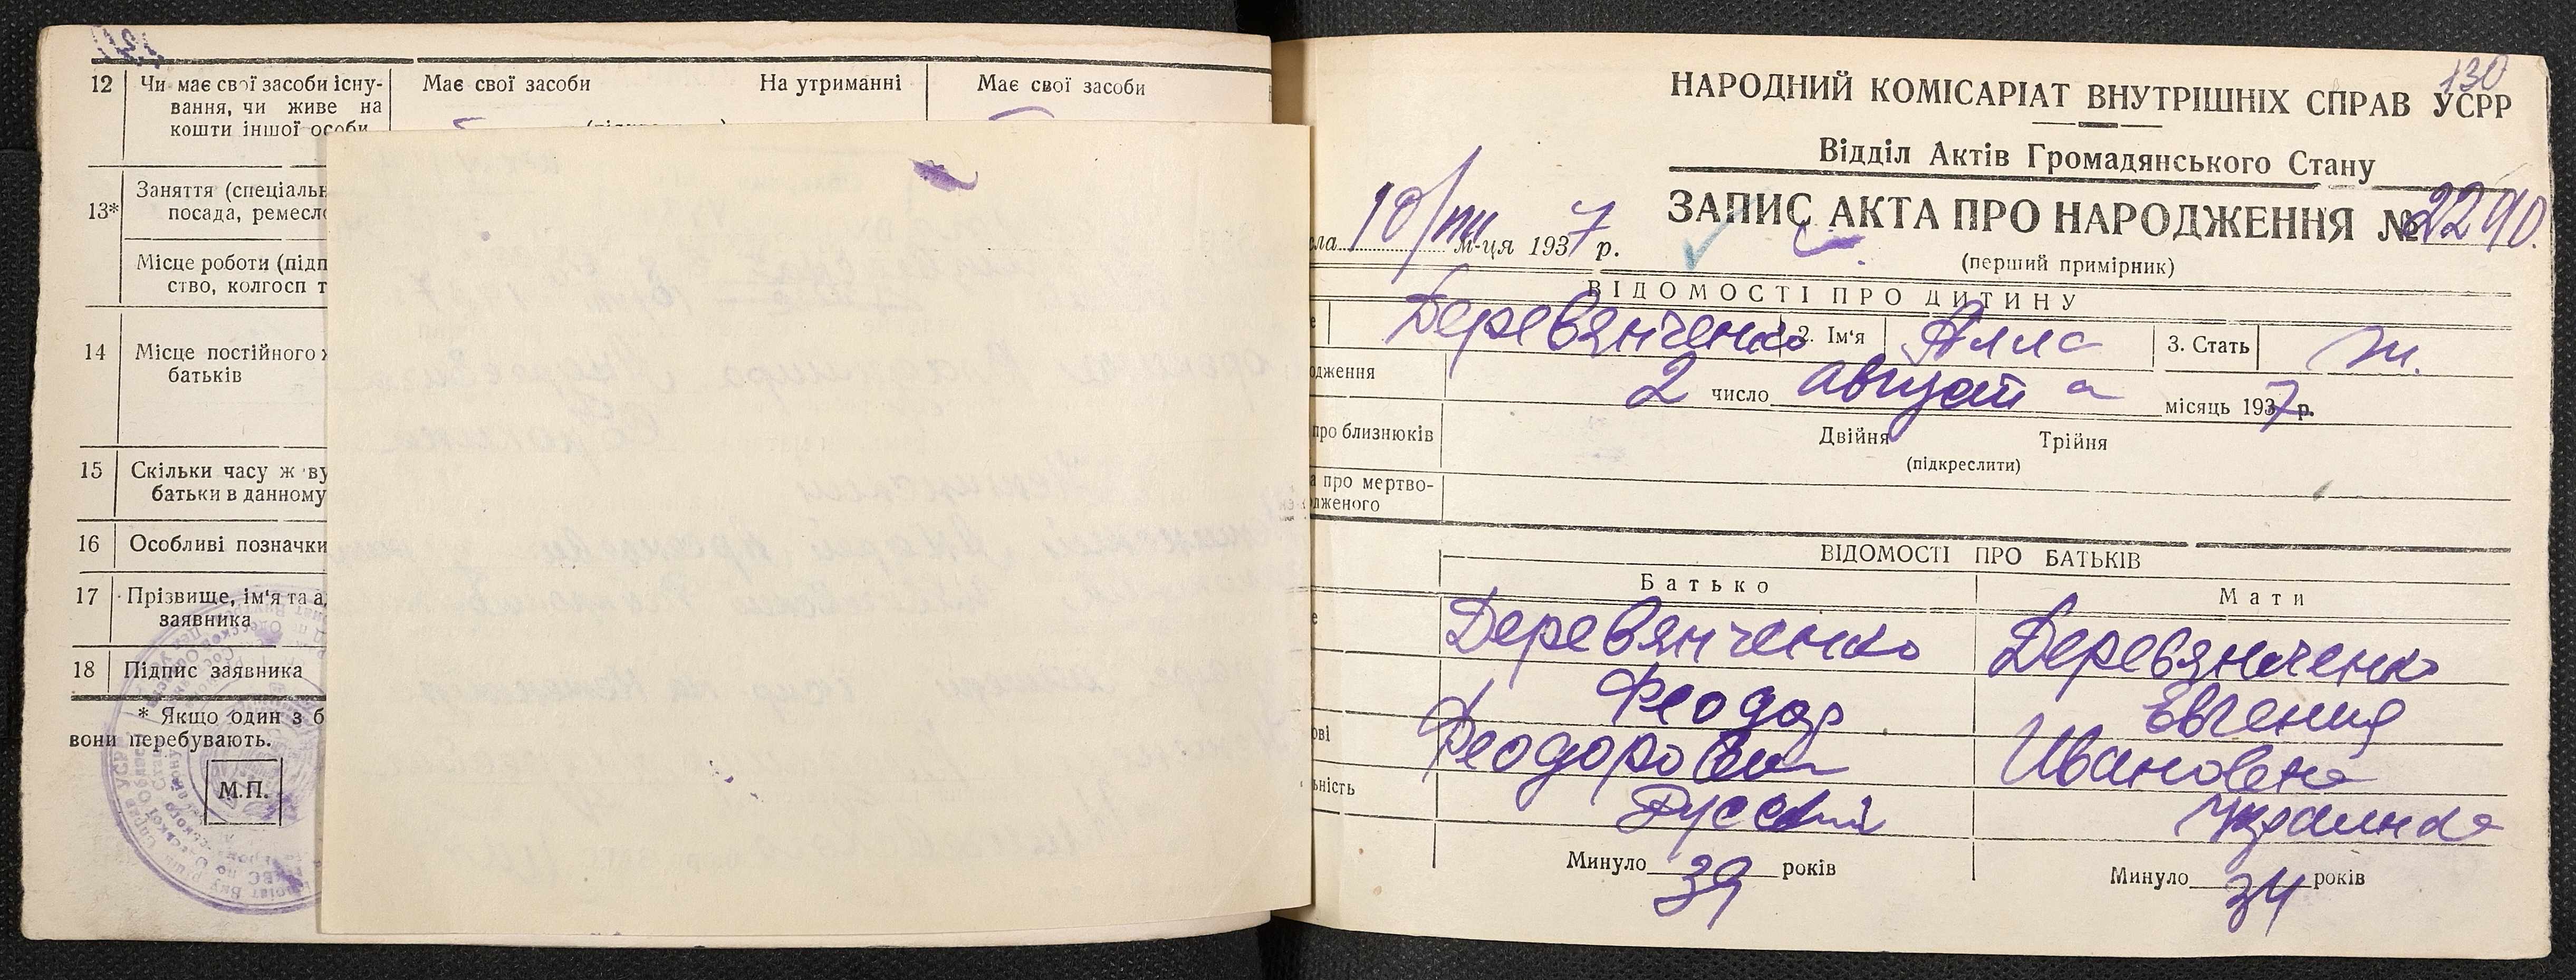 12 Чи має свої засоби існу- Має свої засоби На утриманні Має свої засоби
вання, чи живе на
кошти іншої особи
Заняття (спеціальн
13* посада, ремесло
Місце роботи (підп
ство, колгосп т
14 Місце постійного
батьків
15 Скільки часу живу
батьки в данному
16 Особливі позначки
17 Прізвище, ім'я та а
заявника
18 Підпис заявника
* Якщо один з б
вони перебувають.
М.П.
130
НАРОДНИЙ КОМІСАРІАТ ВНУТРІШНІХ СПРАВ УСРР
Відділ Актів Громадянського Стану
ЗАПИС АКТА ПРО НАРОДЖЕННЯ № 2290.
сла 10/VIII м-ця 1937 р.
(перший примірник)
ВІДОМОСТІ ПРО ДИТИНУ
е Деревянченко 2. Ім'я Алла 3. Стать ж.
одження 2 число августа місяць 1937 р.
про близнюків Двійня Трійня
(підкреслити)
а про мертво-
дженого
ВІДОМОСТІ ПРО БАТЬКІВ
Батько Мати
е Деревянченко Деревянченко
Феодор Евгения
ові Феодорович Ивановна
ьність Русский Украинка
Минуло 39 років Минуло 34 років